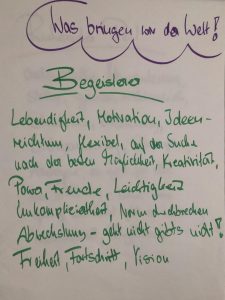 Was bringen wir der Welt!
Begeisterer
Lebendigkeit, Motivation, Ideen-
reichtum, flexibel, auf der Suche
nach der besten Möglichkeit, Kreativität,
Power, Freude, Leichtigkeit
Unkompliziertheit, Norm durchbrechen
Abwechslung - geht nicht gibts nicht!
Freiheit, Fortschritt, Vision